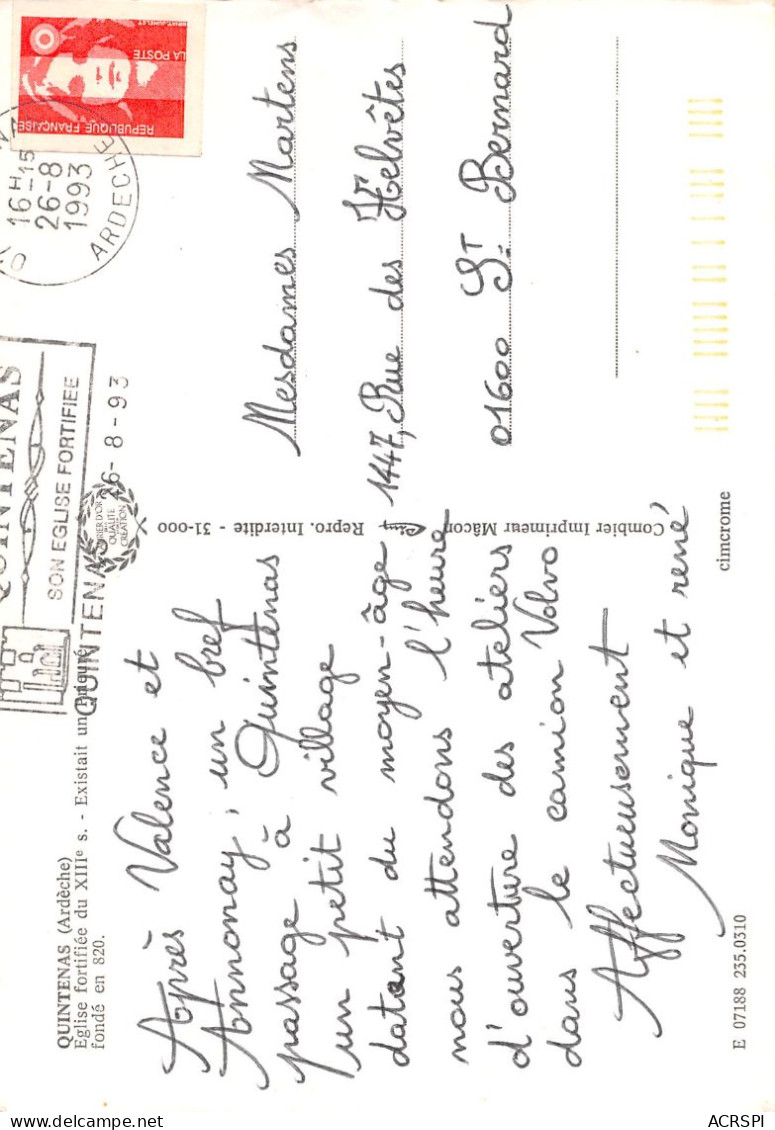 QUINTENAS (Ardèche)
Eglise fortifiée du XIIIe s. - Existait un Prieuré
fondé en 820.
Après Valence et
Annonay, un bref
passage à Quintenas
un petit village
datant du moyen-âge
nous attendons l'heure
d'ouverture des ateliers
dans le camion Volvo
Affectueusement
Monique et rené
E 07188 235.0310
cimcrome
Combier Imprimeur Mâcon
Repro. Interdite - 31-000
QUALITE
CREATION
QUINTENAS
SON EGLISE FORTIFIEE
QUINTENAS 26-8-93
16H-15
26-8
1993
ARDECHE
REPUBLIQUE FRANÇAISE
LA POSTE
Mesdames Martens
1447, Rue des Helvètes
01600 St. Bernard
ACRSPI